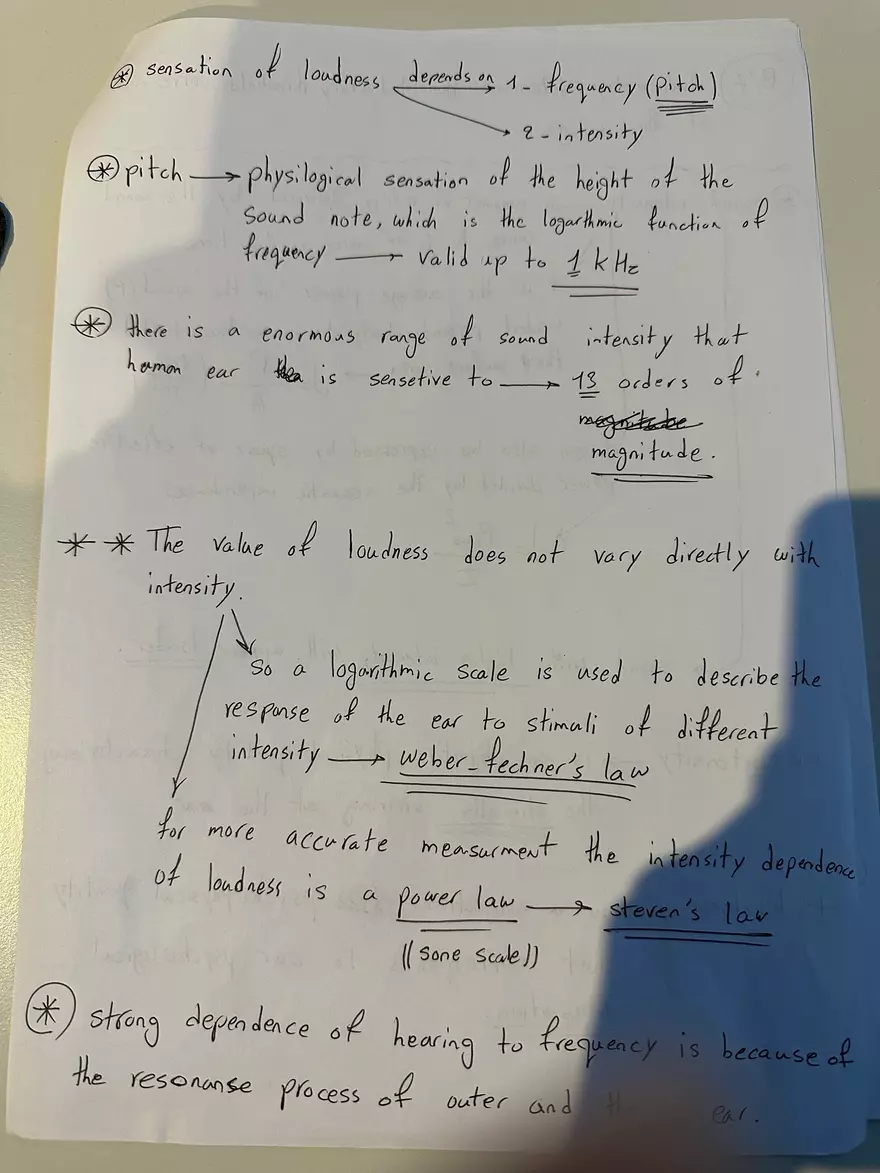 * sensation of loudness depends on → 1 - frequency (pitch)
→ 2 - intensity
* pitch → physilogical sensation of the height of the
sound note, which is the logarthmic function of
frequency → valid up to 1 kHz
* there is a enormous range of sound intensity that
human ear is sensetive to → 13 orders of
magnitude.
* * The value of loudness does not vary directly with
intensity.
so a logarithmic scale is used to describe the
response of the ear to stimuli of different
intensity → weber-fechner's law
for more accurate measurment the intensity dependence
of loudness is a power law → steven's law
((sone scale))
* strong dependence of hearing to frequency is because of
the resonanse process of outer and ear.